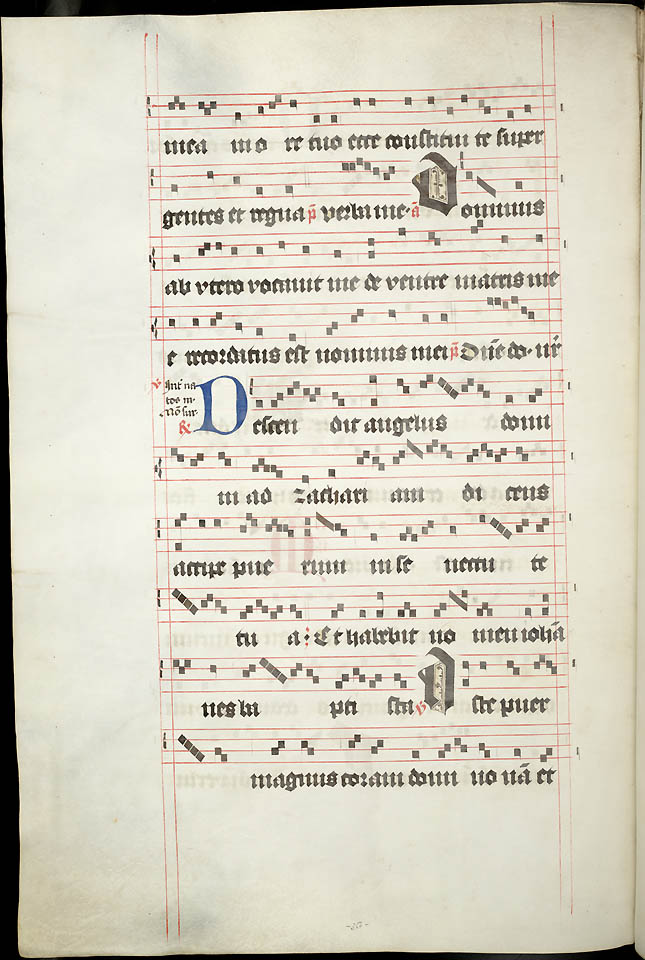 mea in o re tuo ecce constitui te super
gentes et regna p̄ verba me· a Dominus
ab vtero vocauit me de ventre m̄atris me
e recordatus est nominis mei p̄ Dn̄e do· nr̄
v Int̄ na tos m· nō sur· R Descen dit angelus domi
ni ad zachari am di cens
accipe pue rum in se nectu te
tu a: Et habebit no men ioh̄a
nes ba pti sta v Iste puer
magnus coram domi no nā et